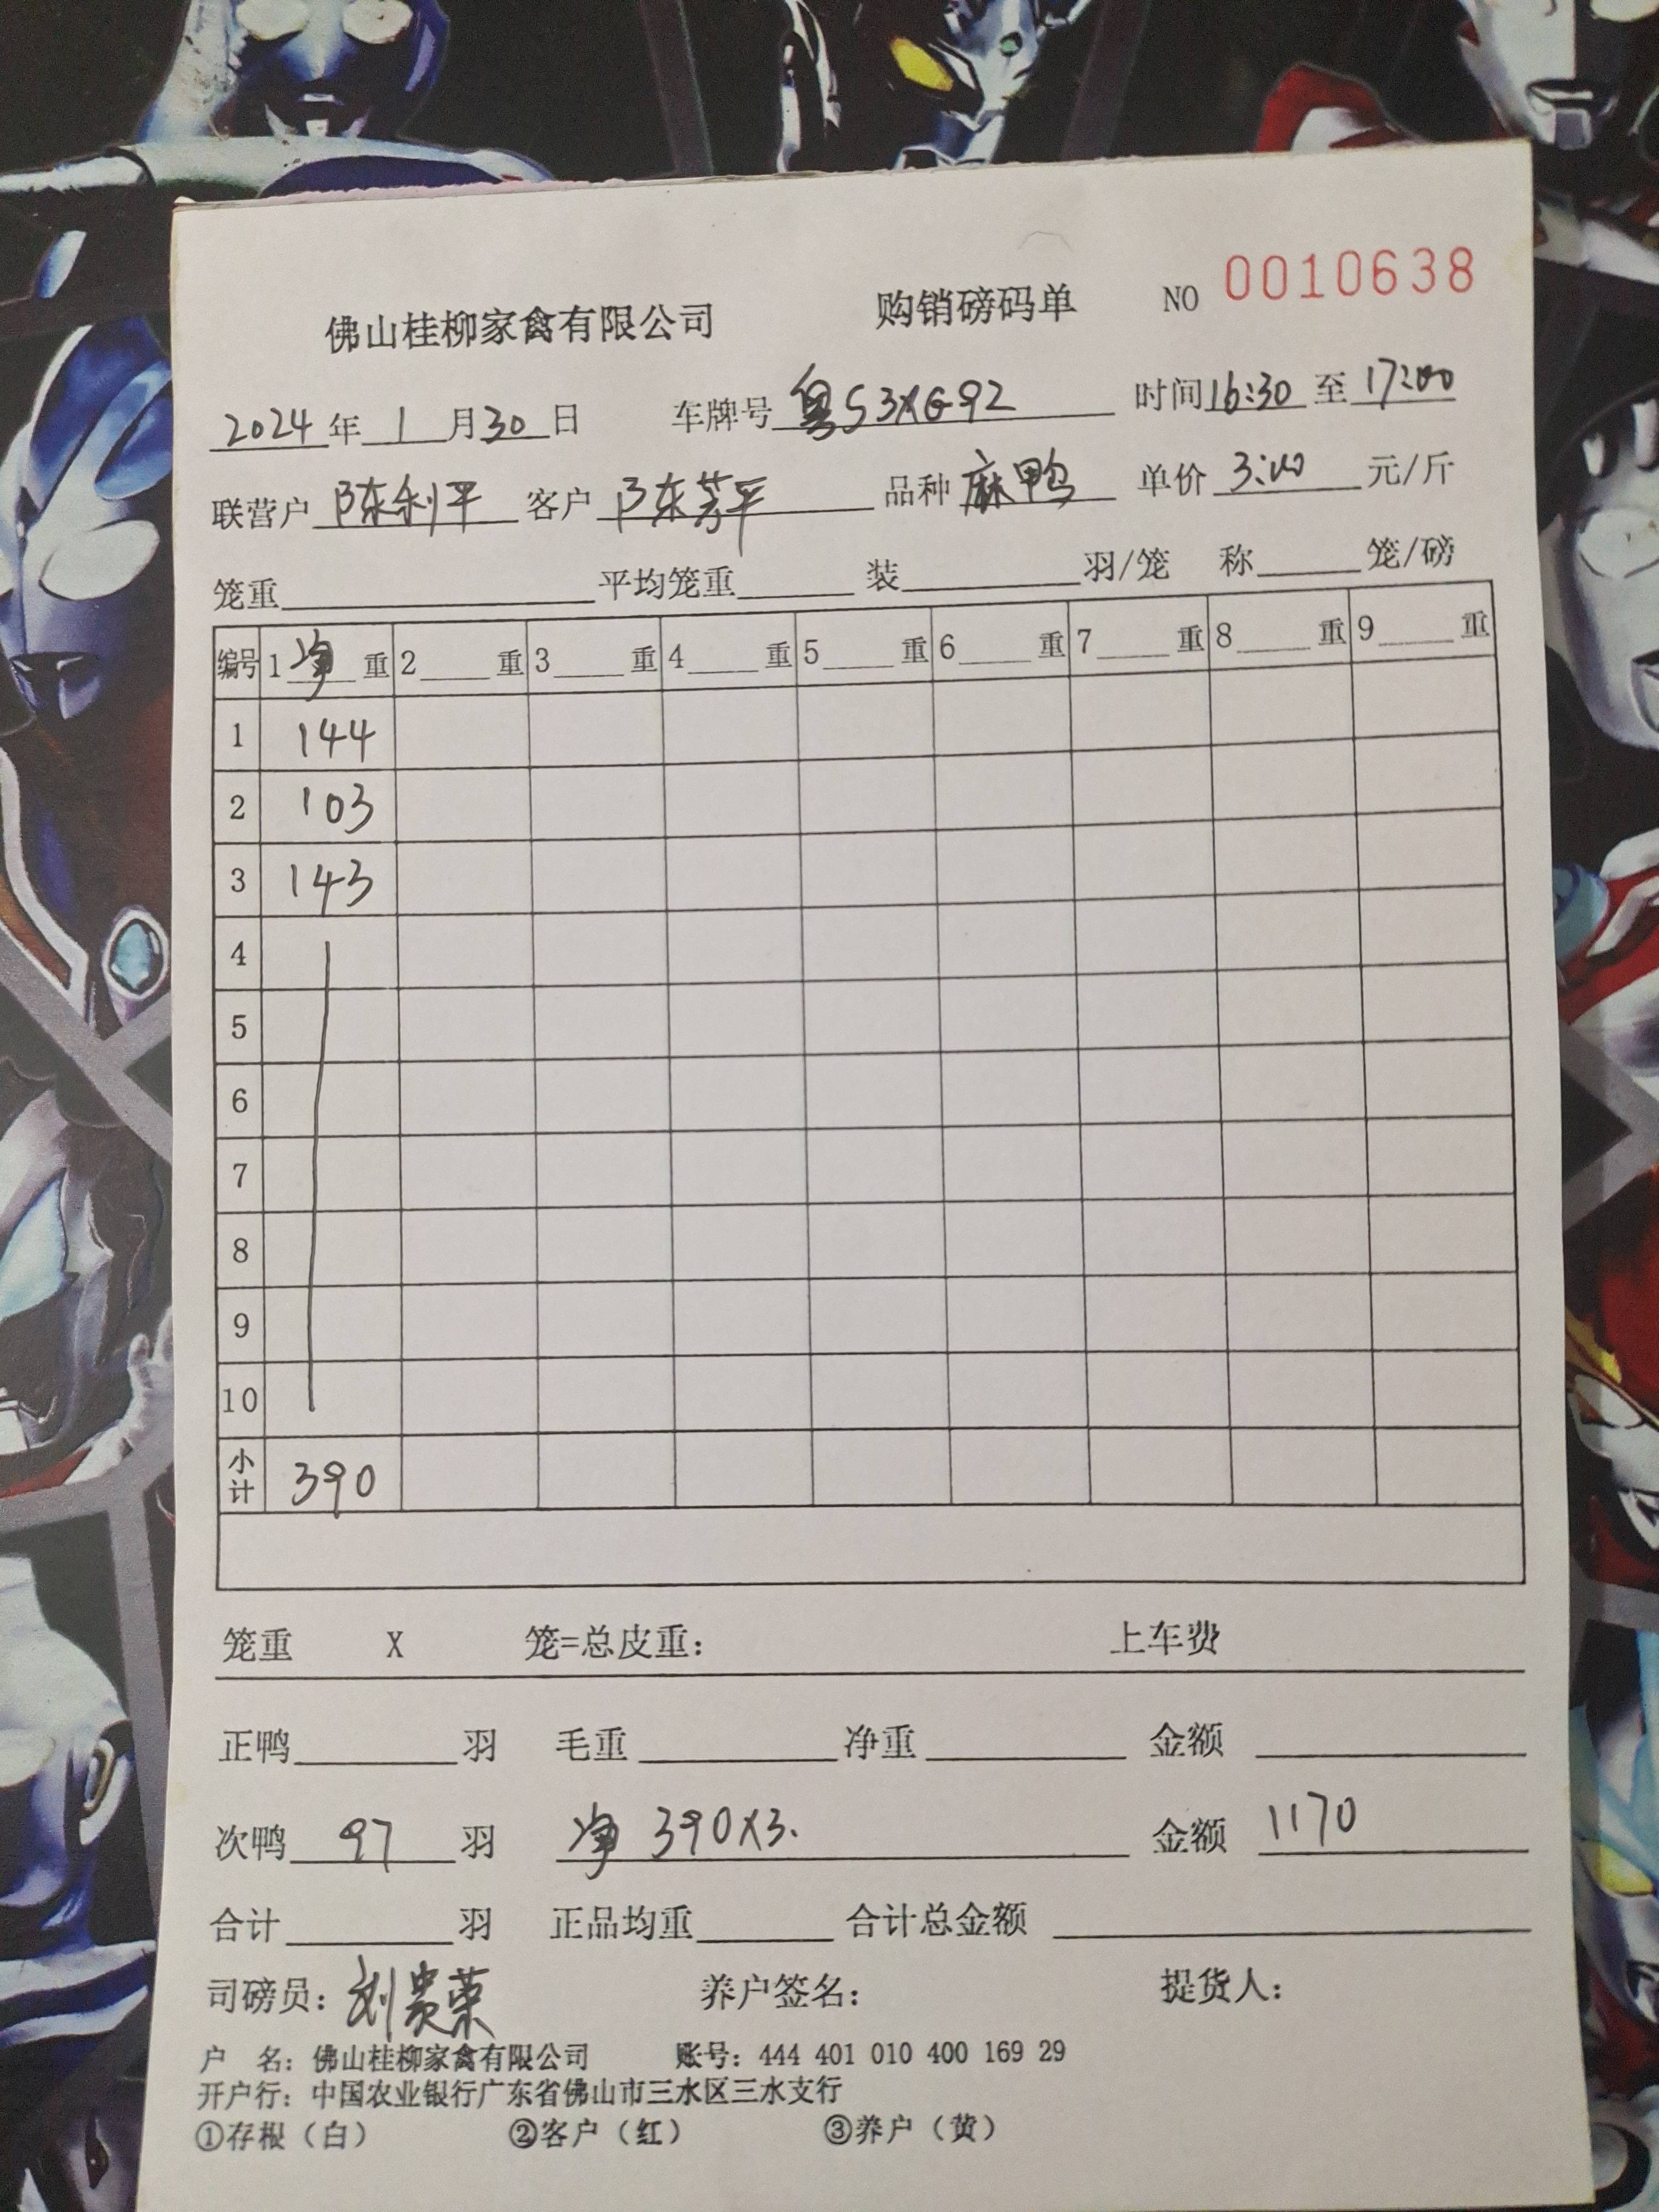 佛山桂柳家禽有限公司 购销磅码单 NO 0010638
2024年1月30日 车牌号 粤S3XG92 时间16:30至17:00
联营户 陈利平 客户 陈芳平 品种 麻鸭 单价 3:00 元/斤
笼重 平均笼重 装 羽/笼 称 笼/磅
编号 1净重 2重 3重 4重 5重 6重 7重 8重 9重
1 144
2 103
3 143
4
5
6
7
8
9
10
小计 390
笼重 X 笼=总皮重: 上车费
正鸭 羽 毛重 净重 金额
次鸭 97 羽 净 390X3. 金额 1170
合计 羽 正品均重 合计总金额
司磅员: 刘贵荣 养户签名: 提货人:
户 名: 佛山桂柳家禽有限公司 账号: 444 401 010 400 169 29
开户行: 中国农业银行广东省佛山市三水区三水支行
①存根(白) ②客户(红) ③养户(黄)